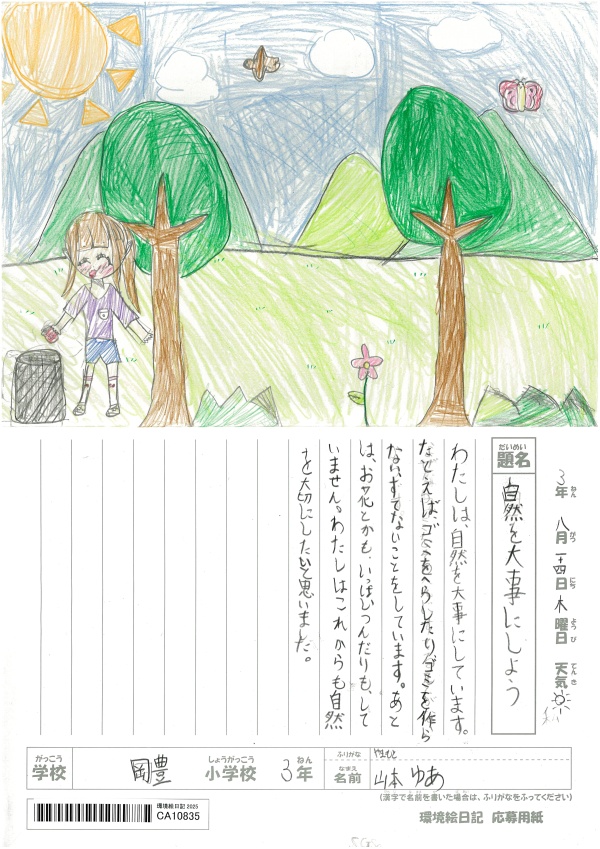 3年 八月 十四日 木曜日 天気
ねん がつ にち ようび てんき
だいめい
題名 自然を大事にしよう
わたしは、自然を大事にしています。
たとえば、ゴミをへらしたりゴミを作ら
ない、すてないことをしています。あと
は、お花とかも、いっぱいつんだりも、して
いません。わたしはこれからも自然
を大切にしたいと思いました。
がっこう
学校
岡豊
しょうがっこう
小学校
3年
ねん
ふりがな やまもと
なまえ
名前 山本 ゆあ
(漢字で名前を書いた場合は、ふりがなをふってください)
環境絵日記 2025
CA10835
環境絵日記 応募用紙